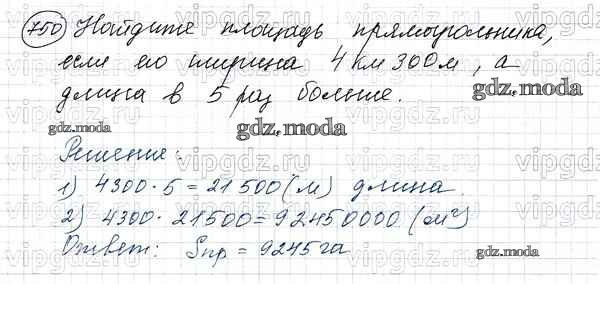 750 Найдите площадь прямоугольника,
если его ширина 4 км 300 м, а
длина в 5 раз больше.
gdz.moda
gdz.moda
gdz.moda
Решение:
1) 4300 · 5 = 21500 (м) длина.
2) 4300 · 21500 = 92450000 (м²)
Ответ: Sпр = 9245 га
gdz.moda
vipgdz.ru